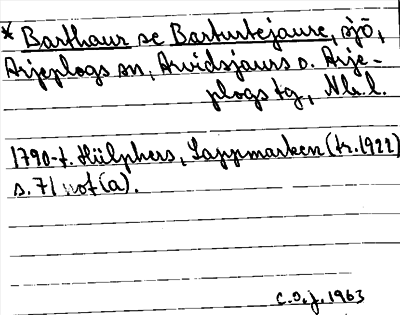 * Barthaur se Barturtejaure, sjö,
Arjeplogs sn, Arvidsjaurs o. Arje-
plogs tg, Nb. l.
1790-t. Hülphers, Lappmarken (tr. 1922)
s. 71 not (a).
C.O.j. 1963